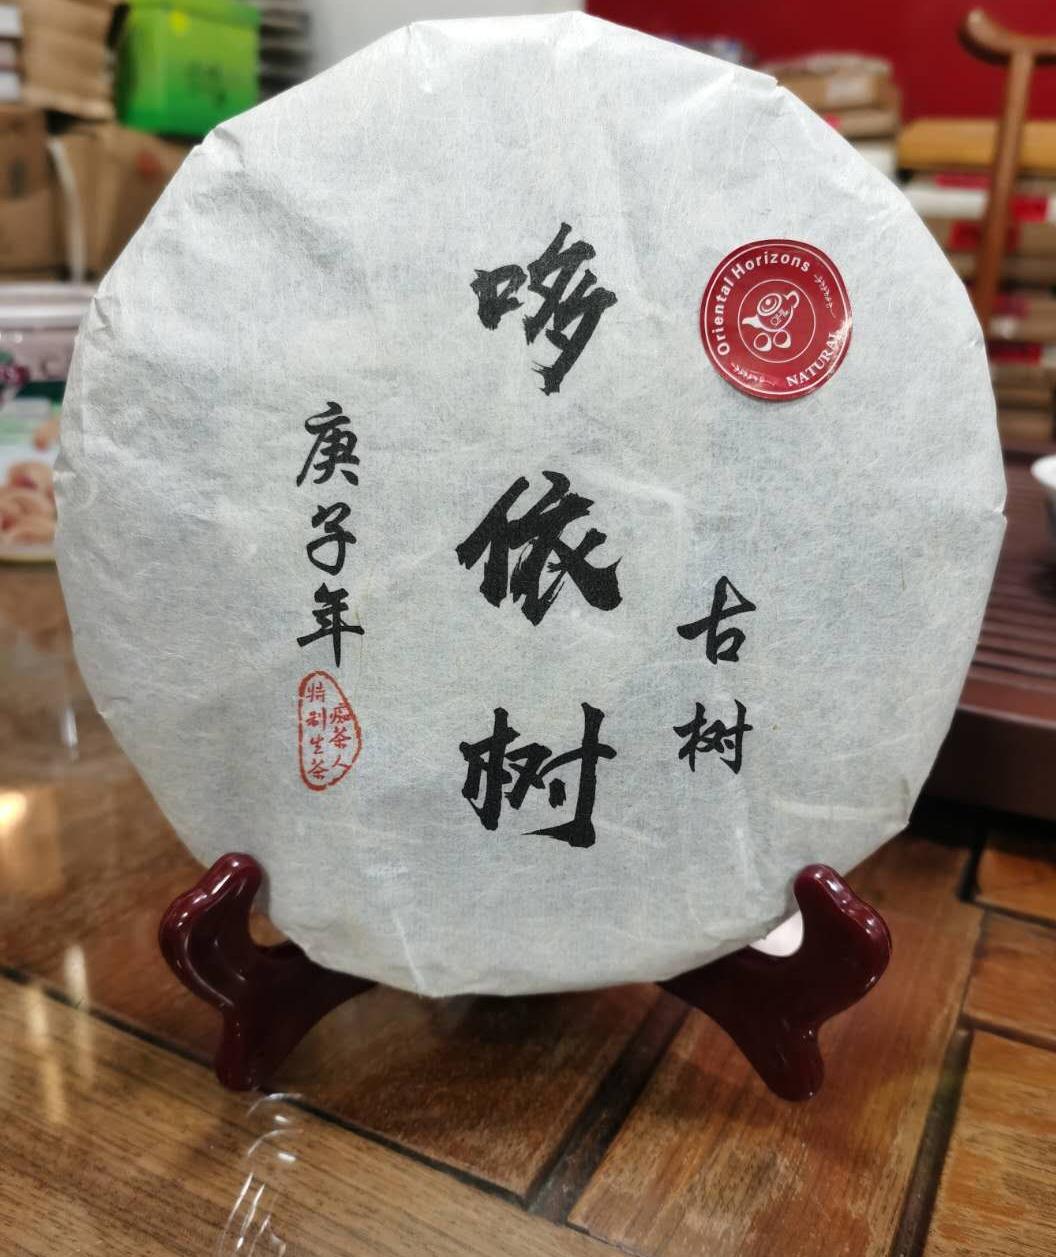 古树
哆依树
庚子年
痴茶人
特别生茶
Oriental Horizons
NATURAL